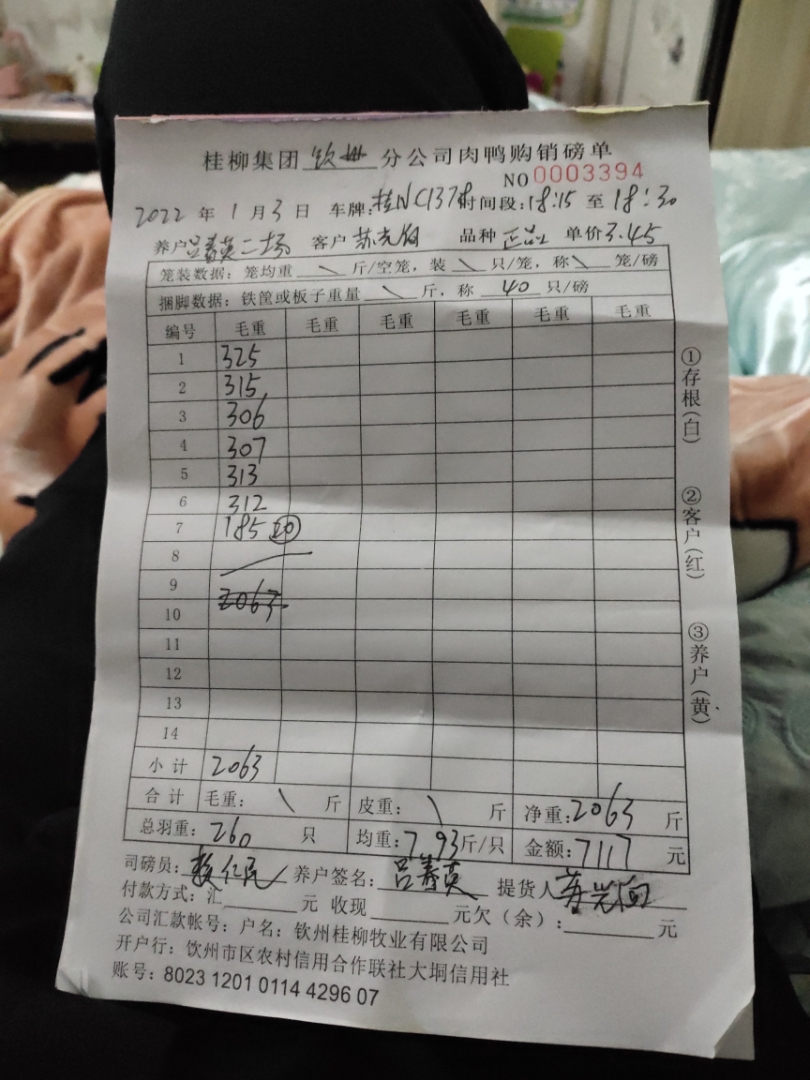 桂柳集团 钦州 分公司肉鸭购销磅单
NO 0003394
2022 年 1 月 3 日 车牌:桂NC1378 时间段:18:15 至 18:30
养户 吕春英二场 客户 品种 正品 单价 3.45
笼装数据:笼均重 \ 斤/空笼,装 \ 只/笼,称 \ 笼/磅
捆脚数据:铁筐或板子重量 \ 斤,称 40 只/磅
编号 毛重 毛重 毛重 毛重 毛重 毛重
1 325
2 315
3 306
4 307
5 313
6 312
7 185 20
8
9
10 2063
11
12
13
14
小计 2063
合计 毛重: \ 斤 皮重: \ 斤 净重:2063 斤
总羽重:260 只 均重:7.93斤/只 金额:7117 元
司磅员: 养户签名:吕春英 提货人
付款方式:汇 元 收现 元欠(余): 元
公司汇款帐号:户名:钦州桂柳牧业有限公司
开户行:钦州市区农村信用合作联社大垌信用社
账号:8023 1201 0114 4296 07
①存根(白)
②客户(红)
③养户(黄)